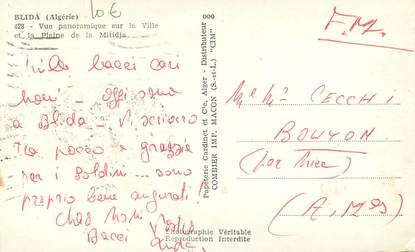 BLIDA (Algérie)
10€
428 - Vue panoramique sur la Ville
et la Plaine de la Mitidja
baci cari
noni - oggi sono
a Blida - Vi scrivero
tra poco e grazie
per i soldini... sono
proprio bene augurati!
Ciao noni
Bacci
Photographie Véritable
Reproduction Interdite
Papeterie Cardinet et Cie, Alger - Distributeur
COMBIER IMP. MACON (S.-et-L.) "CIM"
F.M.
Mr Mme CECCHI
BOUYON
(par Nice)
(A. Mes)